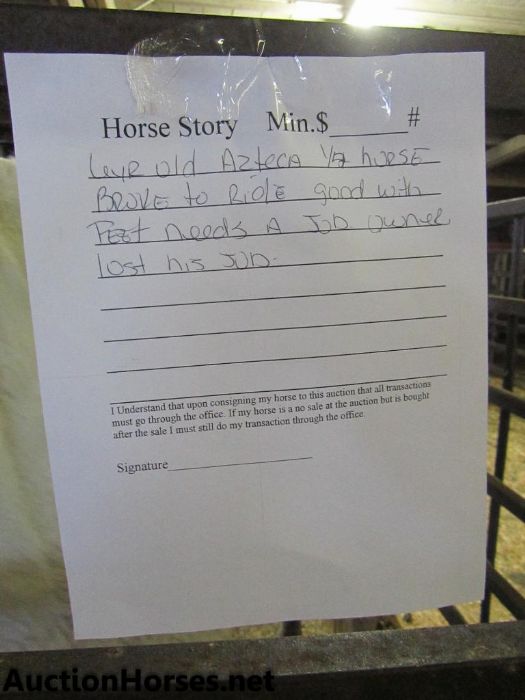 Horse Story Min.$______ #
6 yr old Azteca 1/2 horse
Broke to Ride good with
Feet needs A Job owner
lost his Job.
I Understand that upon consigning my horse to this auction that all transactions
must go through the office. If my horse is a no sale at the auction but is bought
after the sale I must still do my transaction through the office.
Signature____________________
AuctionHorses.net